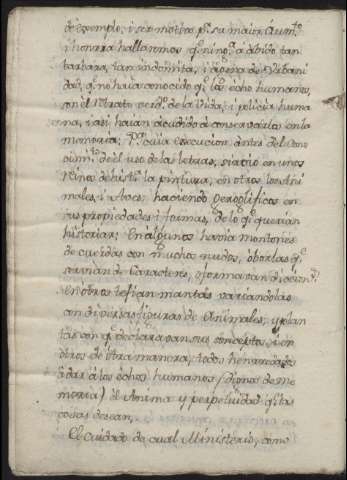 de exemplo, i ser motivos p.ª su maior Aum.to
i honrra hallamos q.e ning.ª a abido tan
barbara, tan indomita, i agena de Vrbani
dad, q.e no haia conocido q.e los echos humanos,
son el Retrato de la Vida, i policia huma
na, i asi haian acudido á conservarlos en la
memoria; P.ª cuia execucion, antes del Cono
cim.to de el uso de las letras, sirvió en unos
Reinos de histt.ª la pintura, en otros los Ani
males, i Aves, haciendo Geroglificos en
sus propiedades i formas, de lo q.e querian
historiar; En algunos havia montones
de cuerdas con muchos nudos, ó borlas q.e
servian de Caracteres, i formavan discurs.º
En otros tefian mantas variandolas
con diversas figuras de Animales, y plan
tas con q.e declaravan sus conceptos, i en
otros de otra manera, todos
á dar á los echos humanos (dignos de me
moria) el Anima y perpetuidad q.e las
cosas desean,
El cuidado de cual Ministerio, como